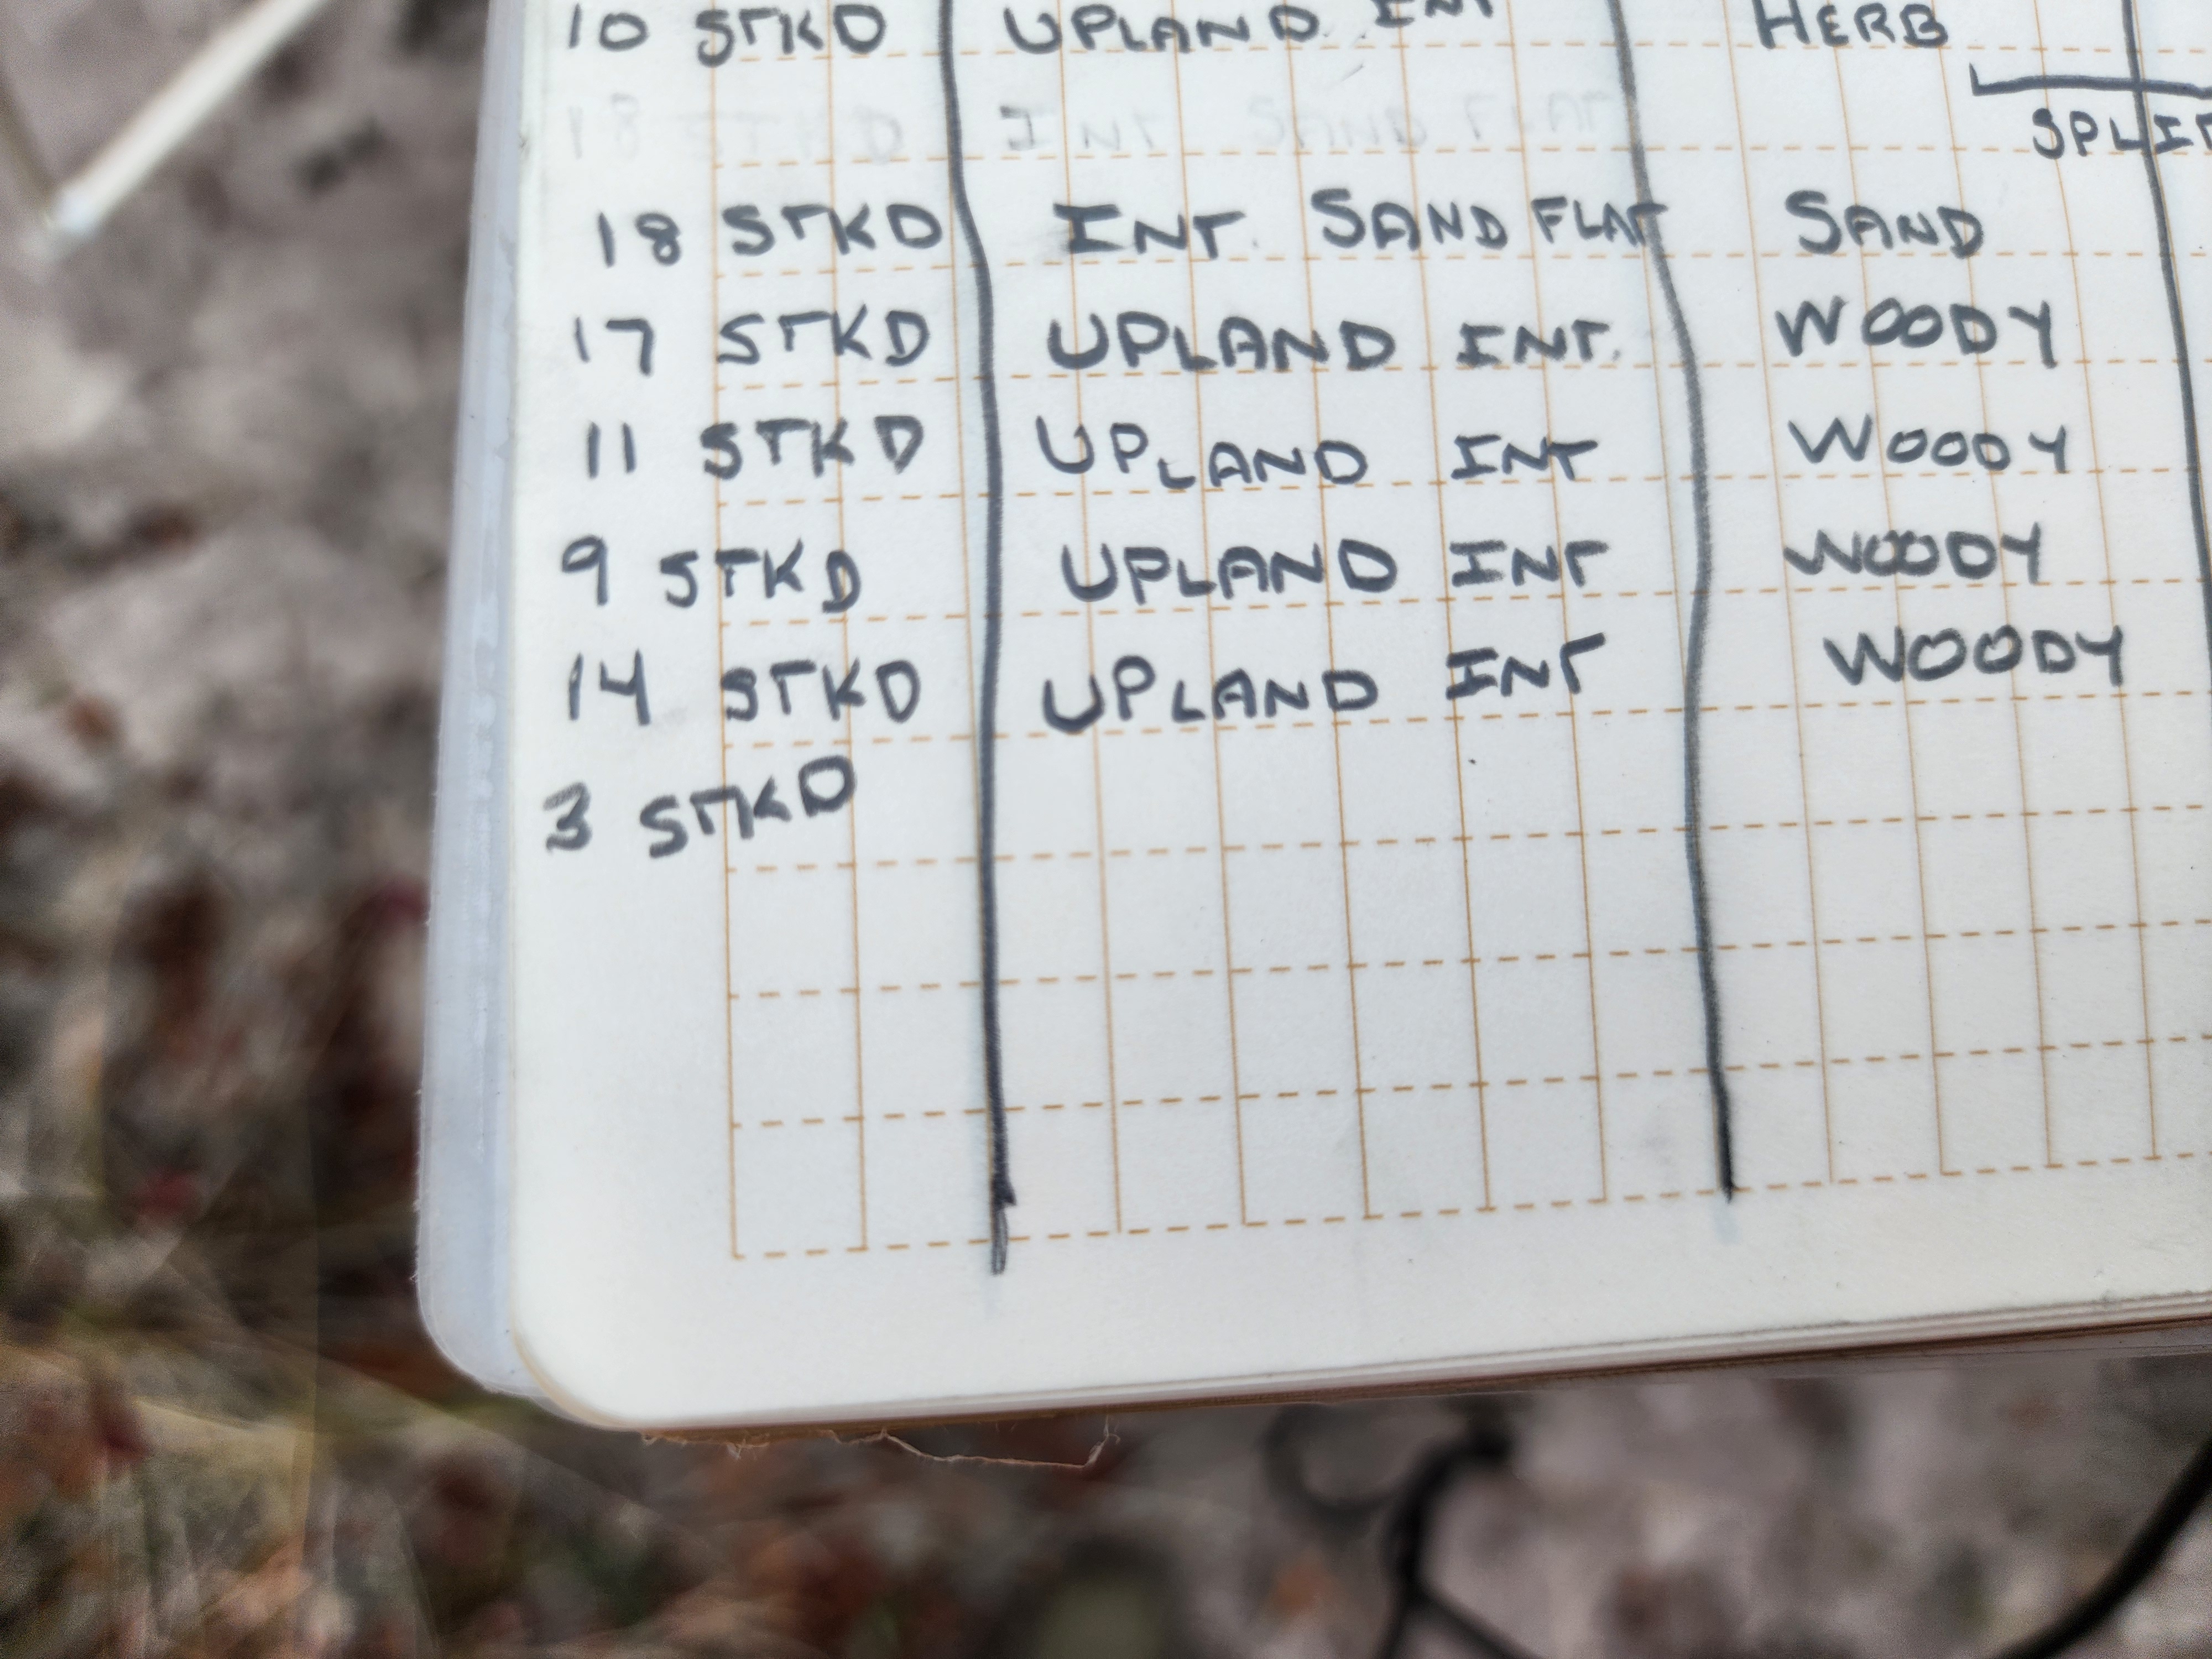 10 STKD UPLAND INT HERB
SPLIT
18 STKD INT SAND FLAT
18 STKD INT. SAND FLAT SAND
17 STKD UPLAND INT. WOODY
11 STKD UPLAND INT WOODY
9 STKD UPLAND INT WOODY
14 STKD UPLAND INT WOODY
3 STKD